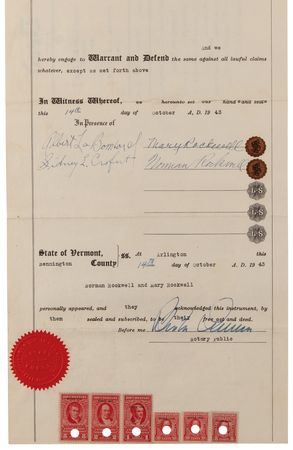 And we
hereby engage to Warrant and Defend the same against all lawful claims
whatever, except as set forth above
In Witness Whereof, we hereunto set our hand and seals
this 14th day of October A. D. 1943
In Presence of
Albert La Bombard Mary Rockwell
Sidney E. Crofut Norman Rockwell
L S
L S
L S
State of Vermont, ss. At Arlington this
Bennington County 14th day of October A. D. 1943
Norman Rockwell and Mary Rockwell
personally appeared, and they acknowledged this instrument, by
them sealed and subscribed, to be their free act and deed.
Before me
Notary Public